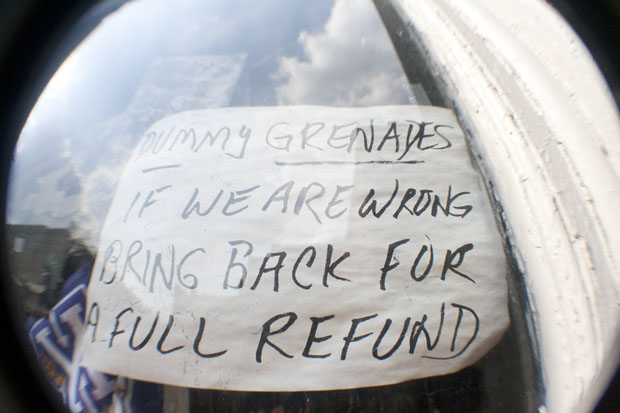 DUMMY GRENADES
IF WE ARE WRONG
BRING BACK FOR
A FULL REFUND